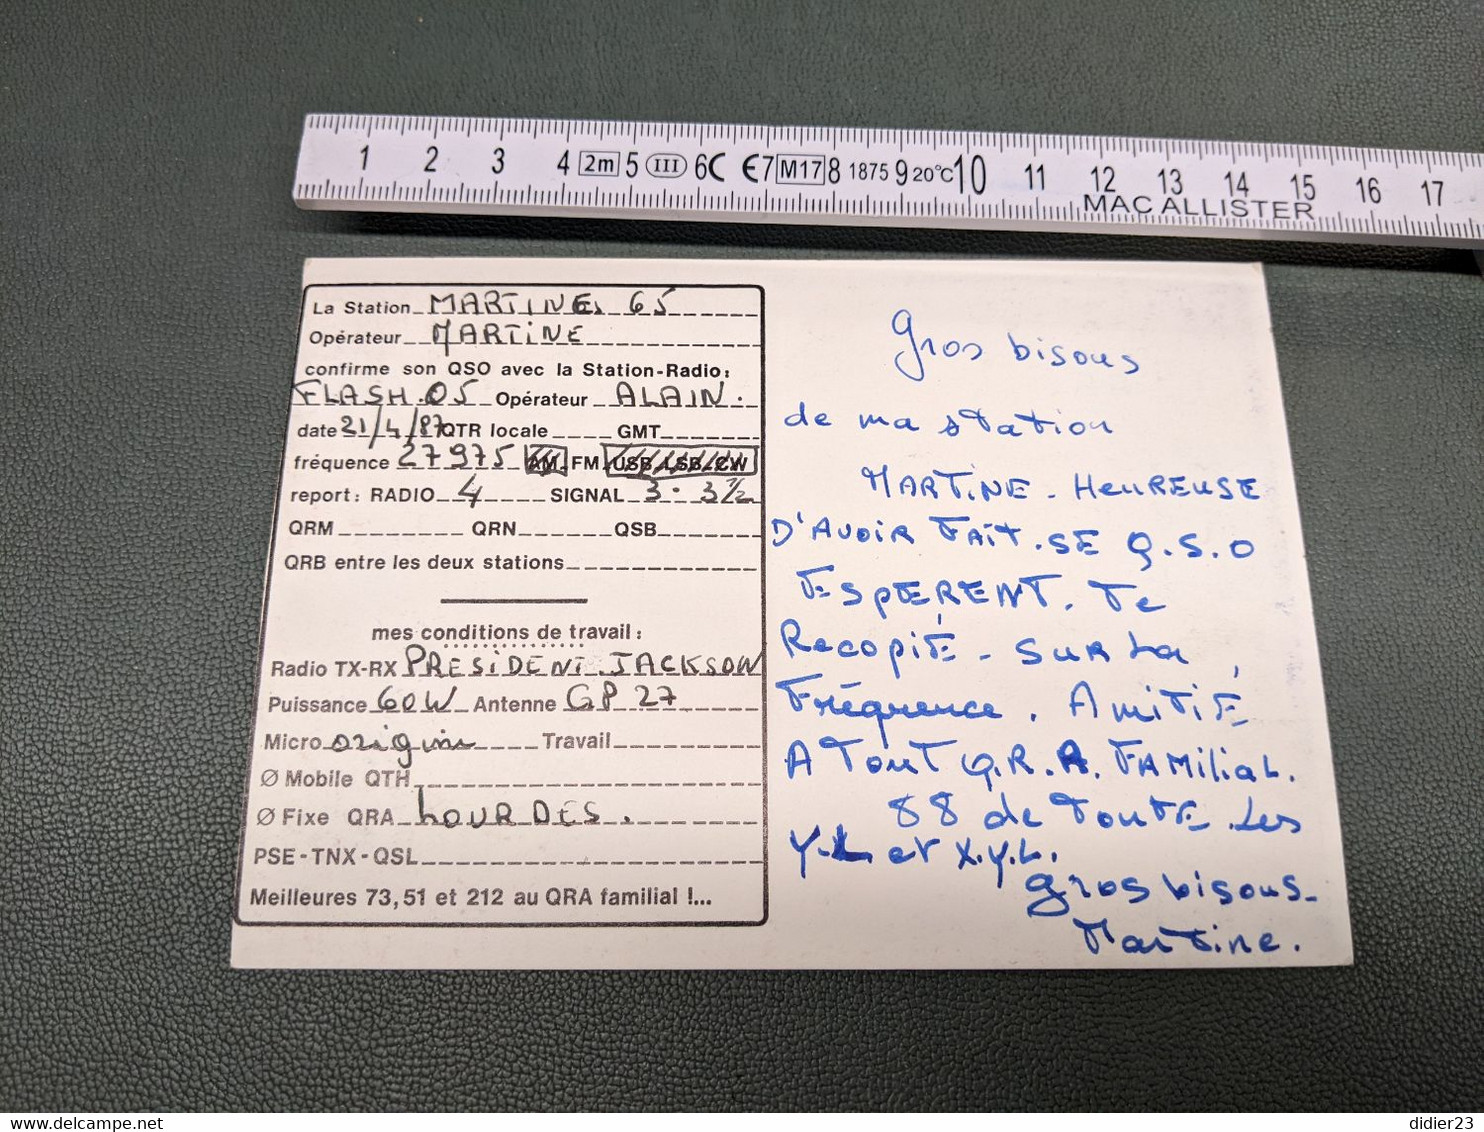 1 2 3 4 2m 5 III 6 C €7 M17 8 1875 9 20°C 10 11 12 13 14 15 16 17
MAC ALLISTER
La Station MARTINE 65
Opérateur MARTINE
confirme son QSO avec la Station-Radio:
FLASH.05 Opérateur ALAIN.
date 21/4/87 QTR locale GMT
fréquence 27975 AM-FM-USB-LSB-CW
report: RADIO 4 SIGNAL 3. 3 1/2
QRM QRN QSB
QRB entre les deux stations
mes conditions de travail:
Radio TX-RX PRESIDENT JACKSON
Puissance 60W Antenne GP 27
Micro origine Travail
Ø Mobile QTH
Ø Fixe QRA LOURDES.
PSE-TNX-QSL
Meilleures 73, 51 et 212 au QRA familial !...
Gros bisous
de ma station
MARTINE - HEUREUSE
D'AVOIR FAIT. SE Q.S.O
ESPERENT. Te
Recopié - SUR La
Fréquence. AMITIÉ
A TOUT Q.R.A. FAMILIAL.
88 de TOUTE Les
Y.L et X.Y.L.
gros bisous-
Martine.
delcampe.net
didier23